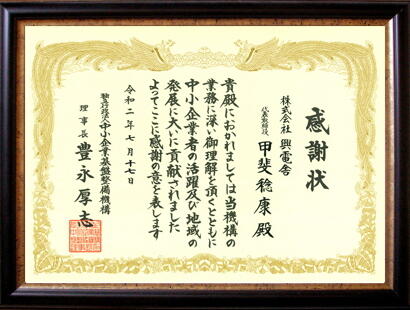 感謝状
株式会社 興電舎
代表取締役 甲斐稔康 殿
貴殿におかれましては当機構の
業務に深い御理解を頂くとともに
中小企業者の活躍及び地域の
発展に大いに貢献されました
よってここに感謝の意を表します
令和二年七月十七日
独立行政法人中小企業基盤整備機構
理事長 豊永厚志